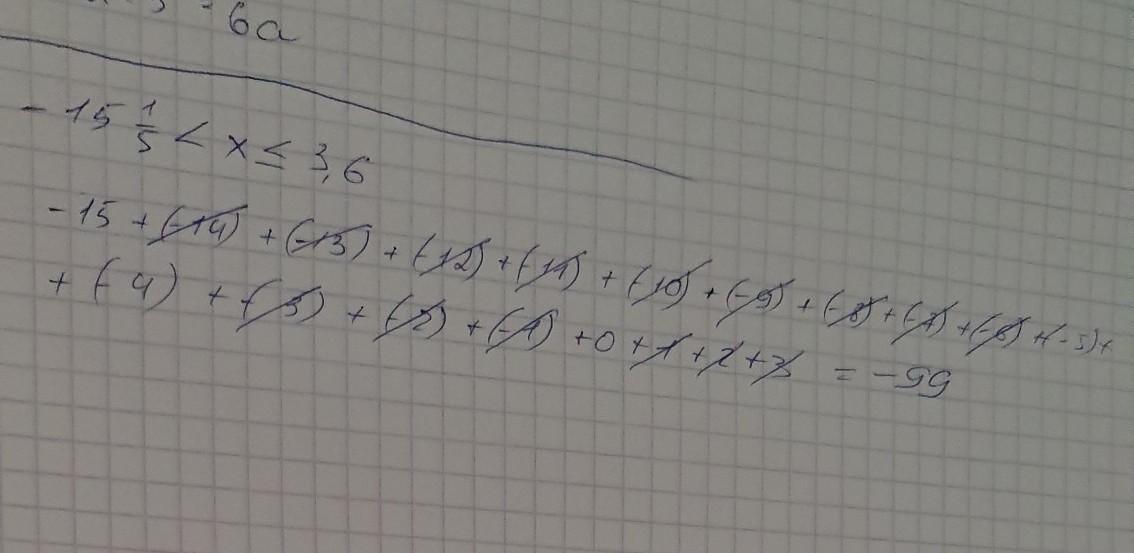 6a
-15 1/5 < x ≤ 3,6
-15 + (-14) + (-13) + (-12) + (-11) + (-10) + (-9) + (-8) + (-7) + (-6) + (-5) +
+ (-4) + (-3) + (-2) + (-1) + 0 + 1 + 2 + 3 = -99